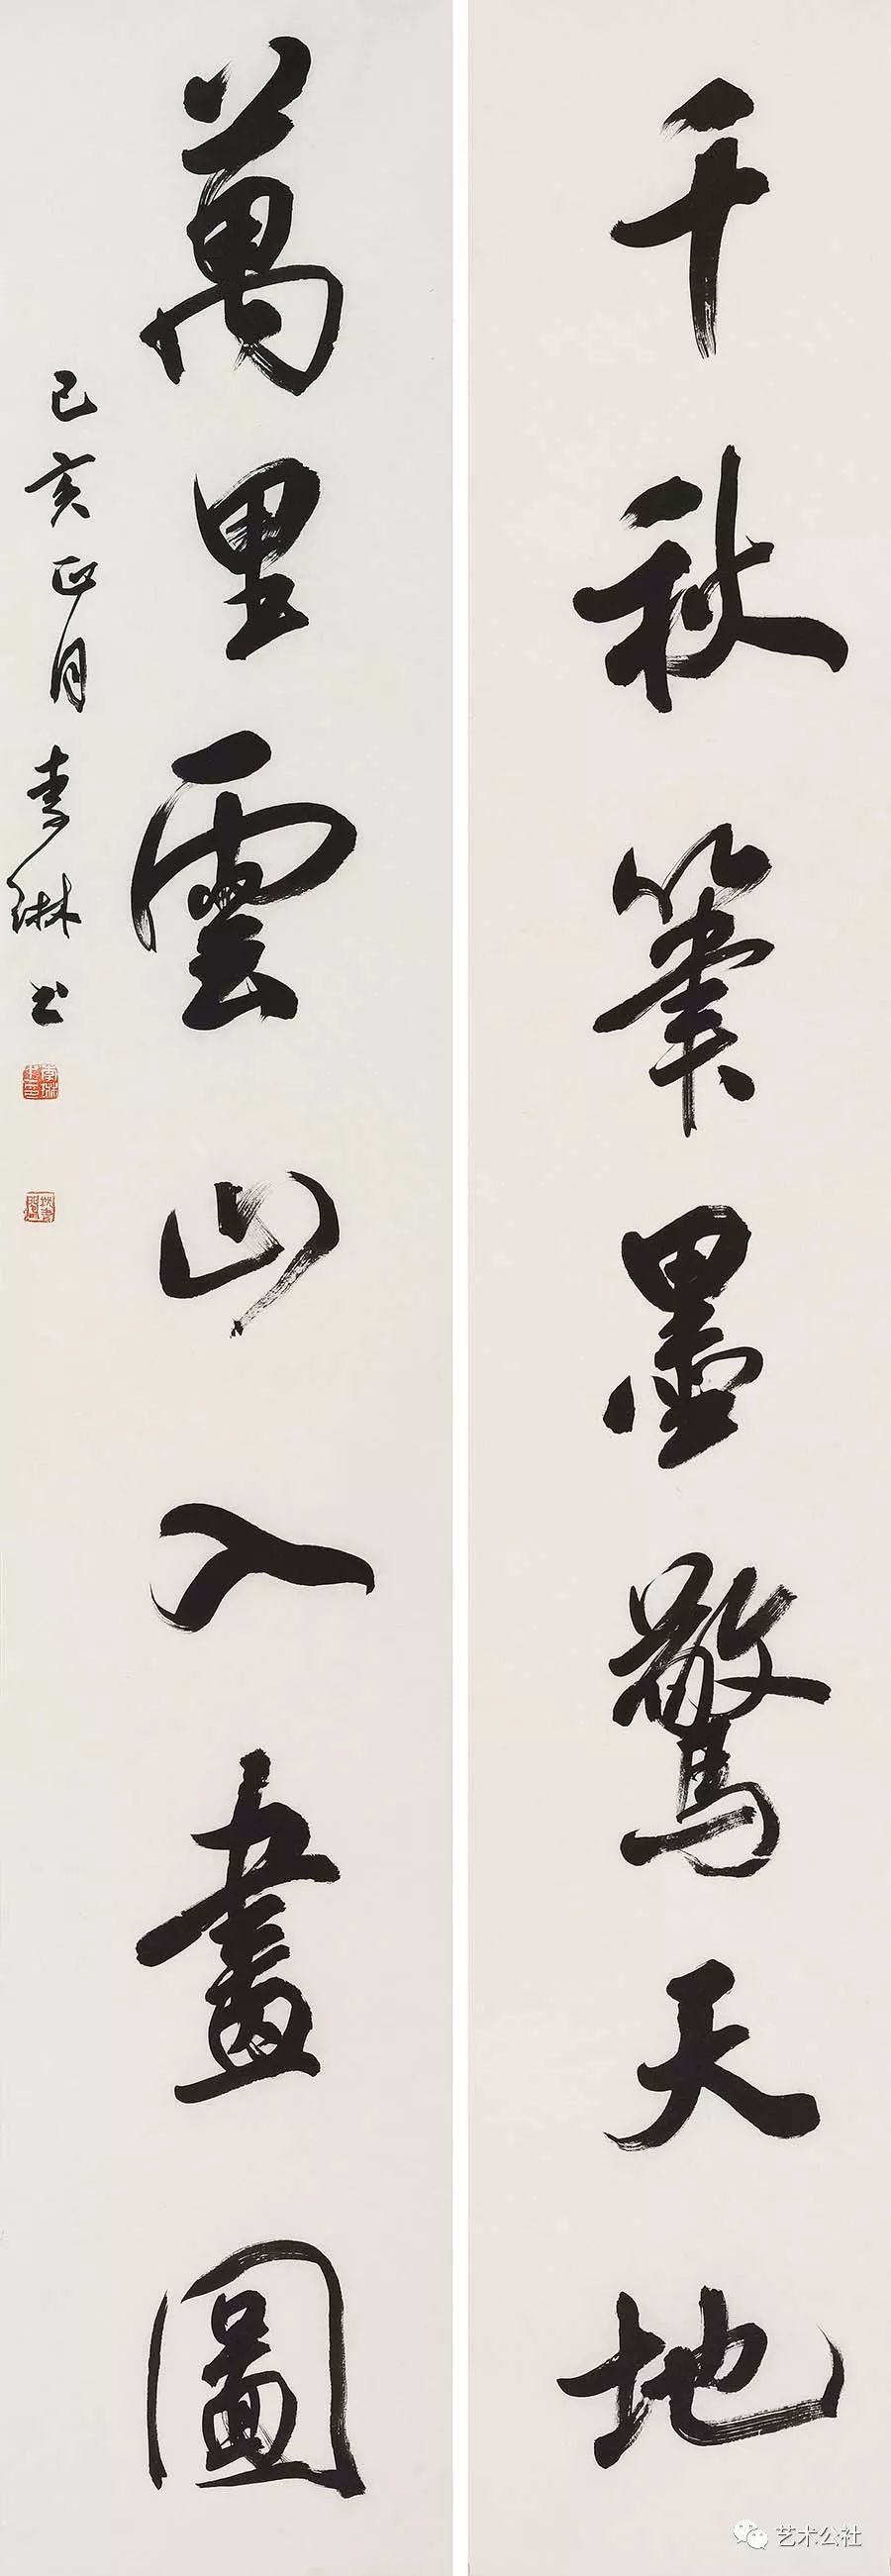 千秋筆墨驚天地
萬里雲山入畫圖
己亥正月李琳书
艺术公社